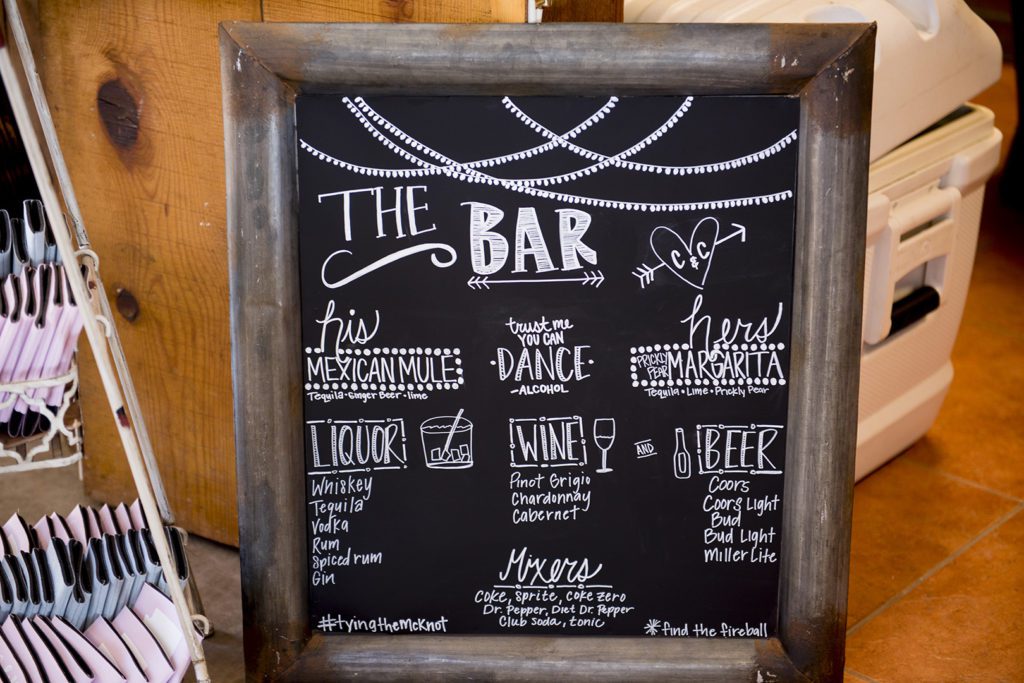 THE BAR
C & C
his
MEXICAN MULE
Tequila • Ginger Beer • lime
trust me
YOU CAN
•DANCE•
-ALCOHOL
hers
PRICKLY PEAR MARGARITA
Tequila • Lime • Prickly Pear
LIQUOR
Whiskey
Tequila
Vodka
Rum
Spiced rum
Gin
WINE
Pinot Grigio
Chardonnay
Cabernet
AND
BEER
Coors
Coors Light
Bud
Bud Light
Miller Lite
Mixers
Coke, sprite, coke zero
Dr. Pepper, Diet Dr. Pepper
Club soda, tonic
#tyingtheMcKnot
*find the fireball